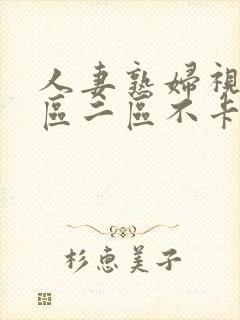 人妻熟婦視
區二區不卡
杉恵美子